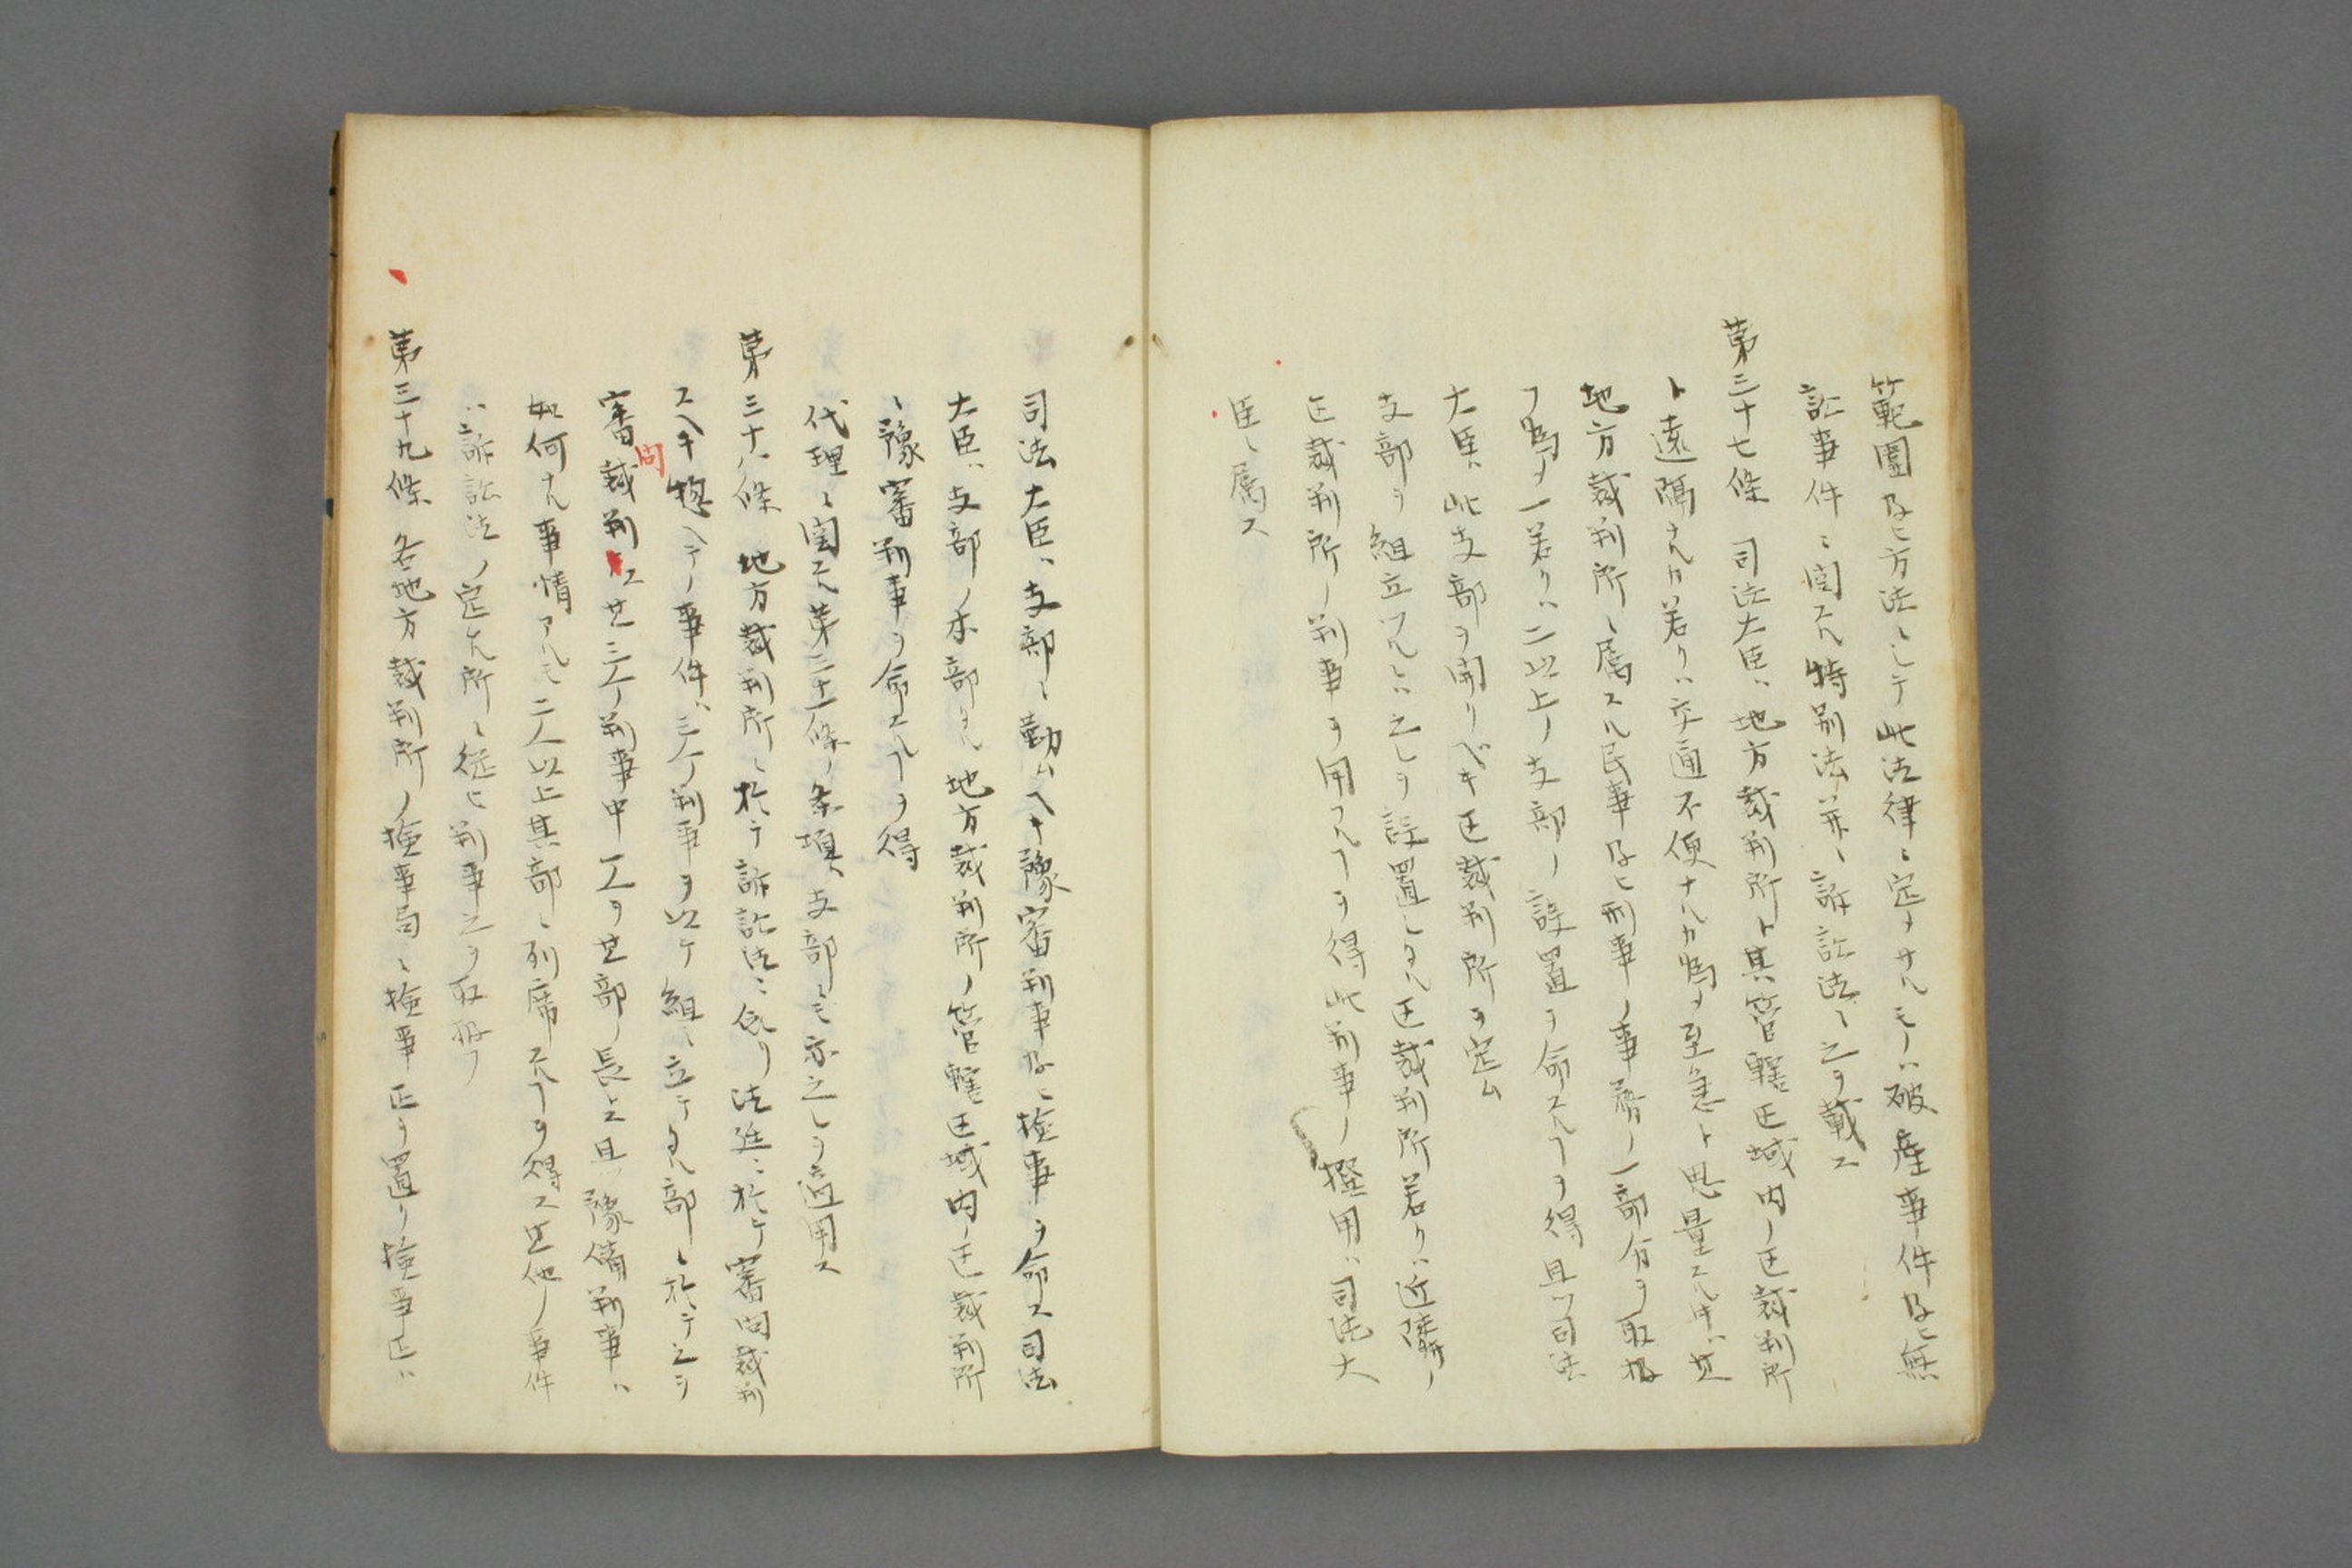 範圍及ヒ方法ニシテ此法律ニ定メサルモノハ破産事件及ヒ無
訟事件ニ関スル特別法并ニ訴訟法ニ之ヲ載ス
第三十七條 司法大臣ハ地方裁判所ト其管轄区域内ノ区裁判所
ト遠隔ナルカ若クハ交通不便ナルカ為メ至急ト思量スル時ハ其
地方裁判所ニ属スル民事及ヒ刑事ノ事務ノ一部分ヲ取扱
フ為メ一若クハ二以上ノ支部ノ設置ヲ命スルヿヲ得且ツ司法
大臣ハ此支部ヲ開クベキ区裁判所ヲ定ム
支部ヲ組立ツルニハ之レヲ設置シタル区裁判所若クハ近隣ノ
区裁判所ノ判事ヲ用フルヿヲ得此判事ノ撰用ハ司法大
臣ニ属ス
司法大臣ハ支部ニ勤ムヘキ豫審判事及ヒ検事ヲ命ス司法
大臣ハ支部ノ本部タル地方裁判所ノ管轄区域内ノ区裁判所
ニ豫審判事ヲ命スルヿヲ得
代理ニ関スル第三十一條ノ条項ハ支部ニモ亦之レヲ適用ス
第三十八條 地方裁判所ニ於テ訴訟法ニ依リ法廷ニ於テ審問裁判
スヘキ惣ヘテノ事件ハ三人ノ判事ヲ以テ組ミ立テタル部ニ於テ之ヲ
審問裁判ス其三人ノ判事中一人ヲ其部ノ長トス且ツ豫備判事ハ
如何ナル事情アルモ二人以上其部ニ列席スルヿヲ得ス其他ノ事件
ハ訴訟法ノ定ル所ニ従ヒ判事之ヲ取扱フ
第三十九條 各地方裁判所ノ検事局ニ検事正ヲ置ク検事正ハ